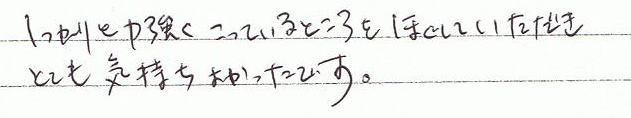 しっかりと力強くこっているところをほぐしていただき
とても気持ちよかったです。